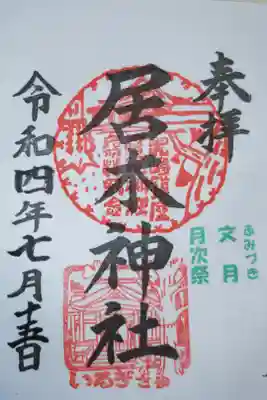 奉拝
ふみづき
文月
月次祭
居木神社
令和四年七月十五日
いるぎさま